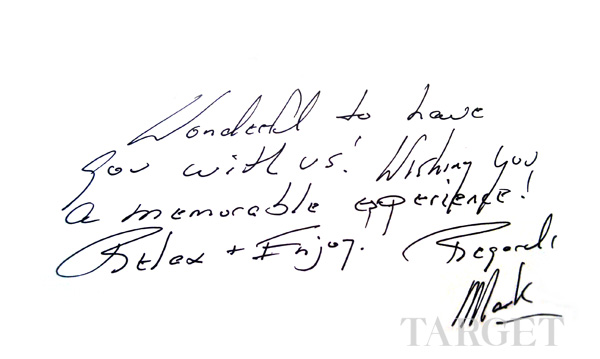 Wonderful to have
you with us! Wishing you
a memorable experience!
Relax + Enjoy. Regards
Mark
TARGET